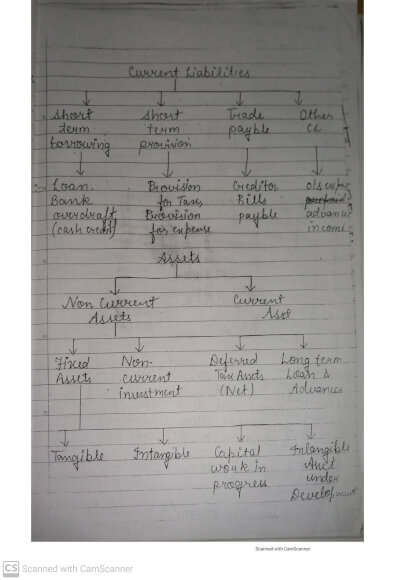 Current Liabilities
Short term borrowing
Short term provision
Trade payble
Other CL
Loan Bank overdraft (cash credit)
Provision for Taxes Provision for expense
Creditor Bills payble
o/s exp advance income
Assets
Non Current Assets
Current Asst
Fixed Assets
Non-current investment
Deferred Tax Assets (Net)
Long term Loan & Advances
Tangible
Intangible
Capital work in progress
Intangible Asst under Development
Scanned with CamScanner
CS Scanned with CamScanner